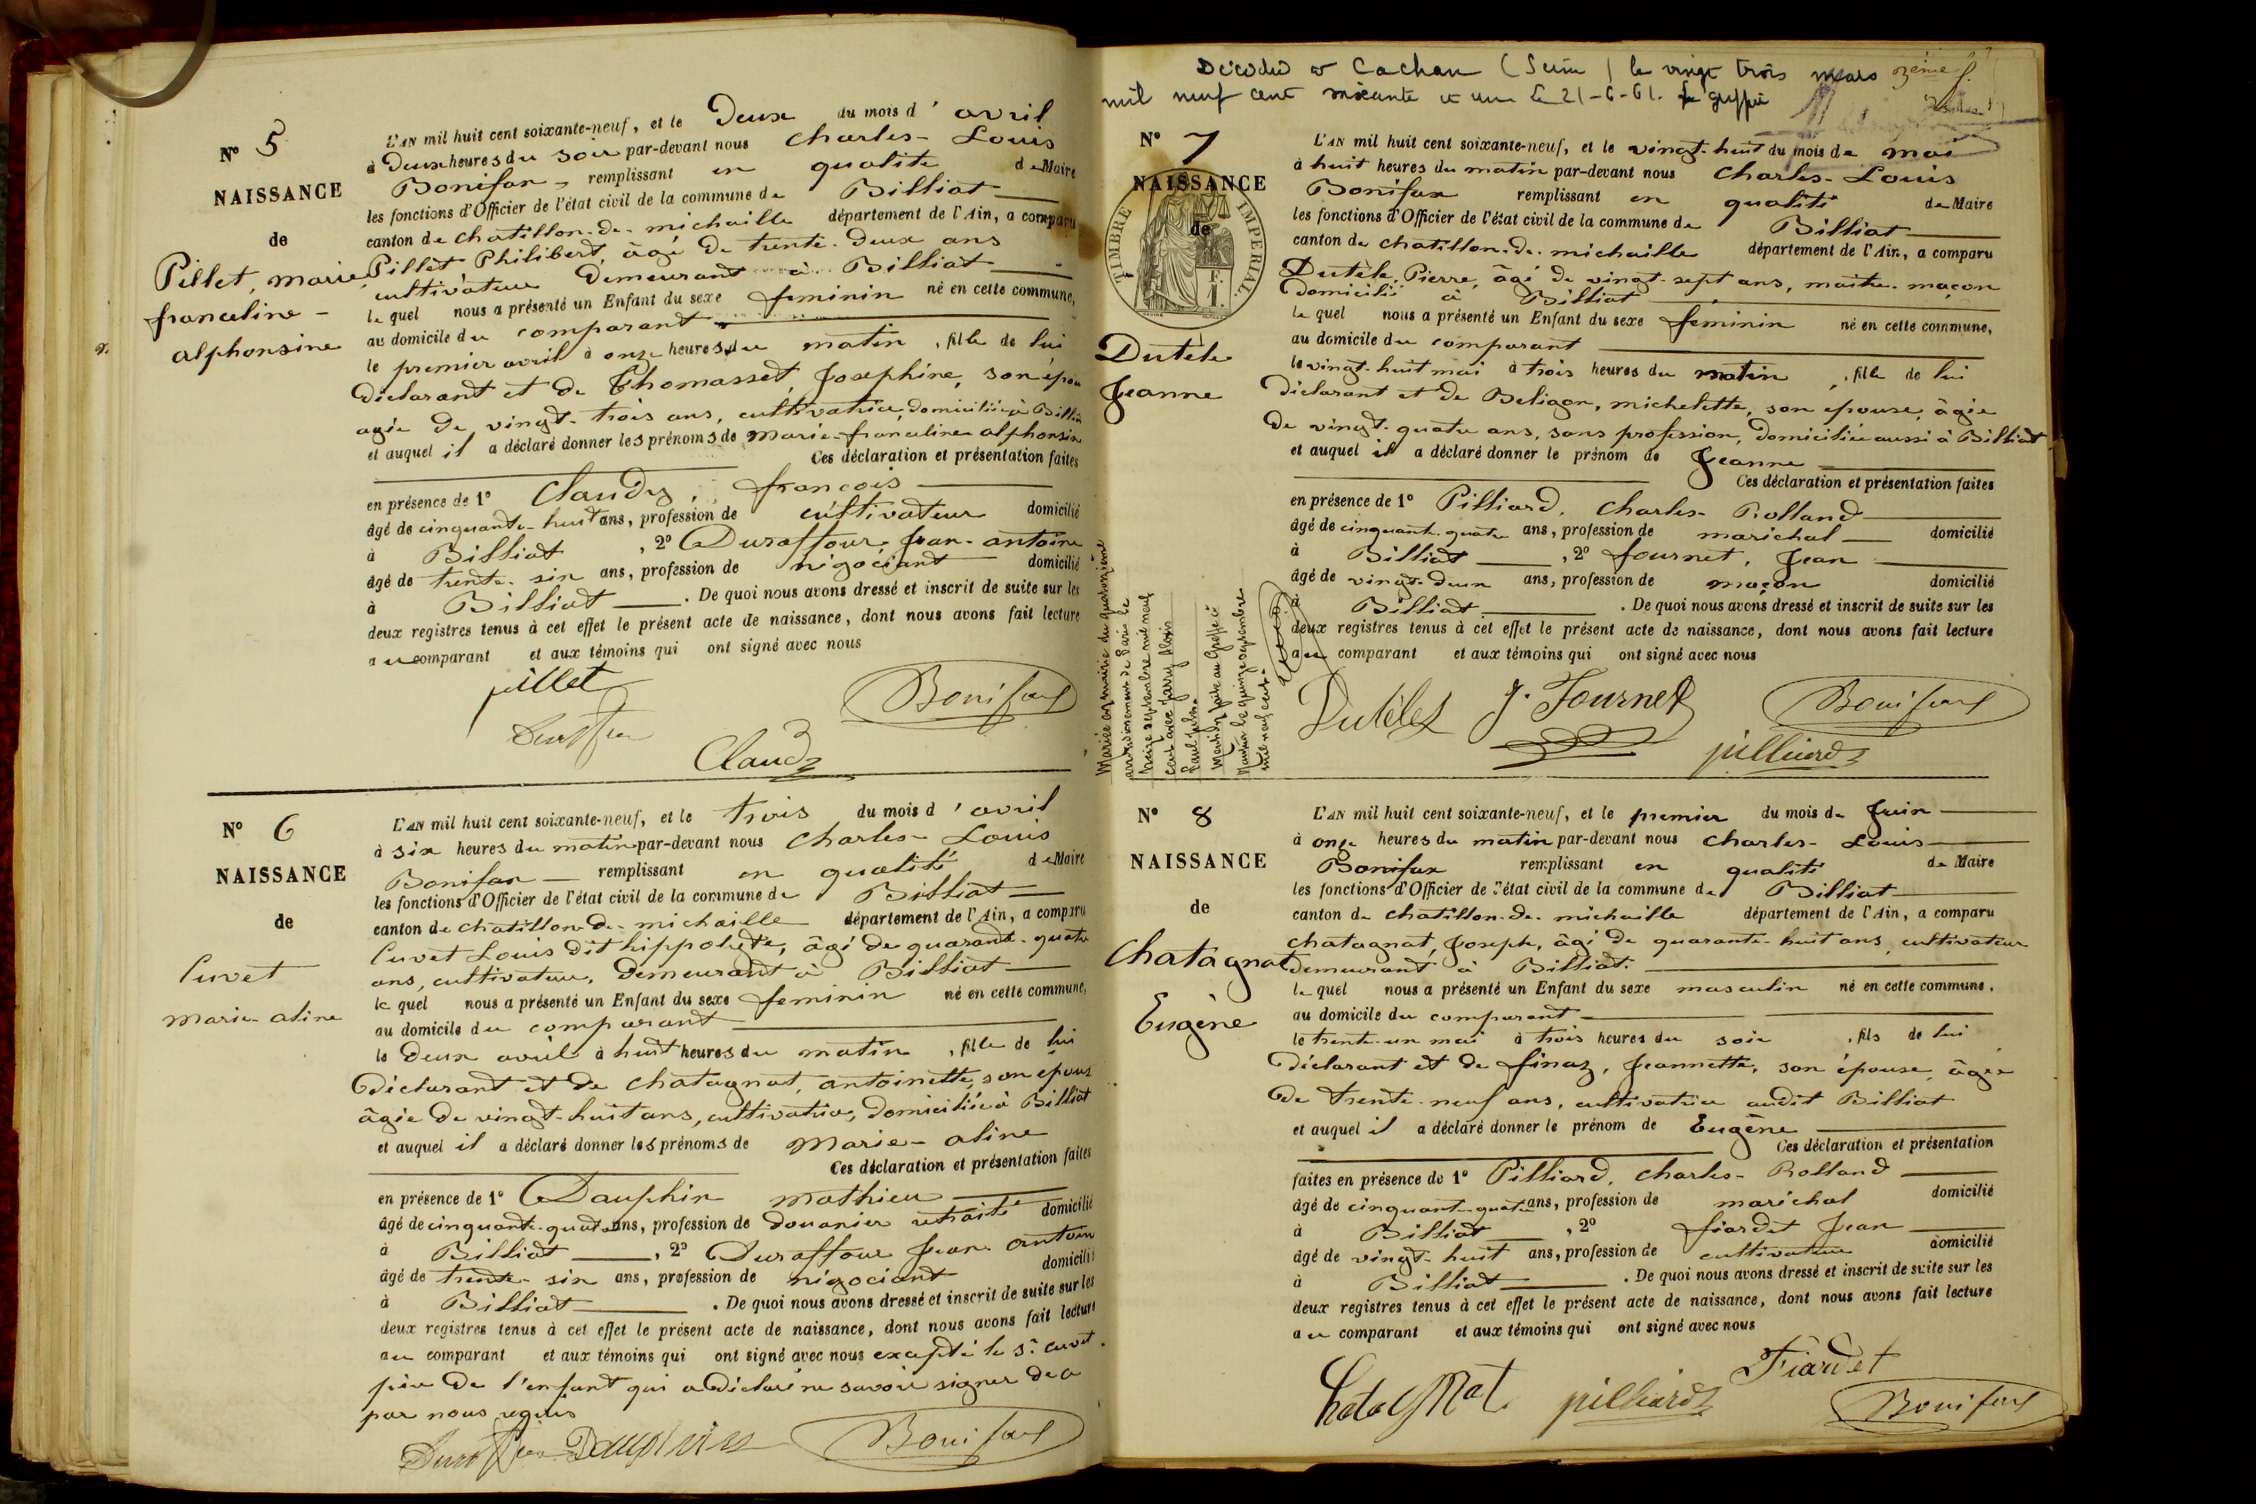 N° 5
NAISSANCE
de
Pillet, marie
franceline -
alphonsine
L'AN mil huit cent soixante-neuf, et le Deux du mois d'avril
à Deux heures du soir par-devant nous Charles-Louis
Bonifax remplissant en qualité de Maire
les fonctions d'Officier de l'état civil de la commune de Billiat
canton de chatillon-de-michaille département de l'Ain, a comparu
Pillet Philibert, âgé De trente-Deux ans
cultivateur Demeurant à Billiat
le quel nous a présenté un Enfant du sexe feminin né en cette commune,
au domicile du comparant
le premier avril à onze heures du matin, fille de lui
Déclarant et de Thomasset, Josephine, son épou
agée De vingt-trois ans, cultivatrice, domiciliée à Billiat
et auquel il a déclaré donner les prénoms de Marie-francéline alphonsine
Ces déclaration et présentation faites
en présence de 1° Claudz, françois
âgé de cinquante-huit ans, profession de cultivateur domicilié
à Billiat, 2° Duraffour Jean-antoine
âgé de trente-six ans, profession de négociant domicilié
à Billiat. De quoi nous avons dressé et inscrit de suite sur les
deux registres tenus à cet effet le présent acte de naissance, dont nous avons fait lecture
au comparant et aux témoins qui ont signé avec nous
pillet
Bonifax
Claudz
N° 6
NAISSANCE
de
Cuvet
marie-aline
L'AN mil huit cent soixante-neuf, et le trois du mois d'avril
à six heures du matin par-devant nous Charles-Louis
Bonifax remplissant en qualité de Maire
les fonctions d'Officier de l'état civil de la commune de Billiat
canton de chatillon-de-michaille département de l'Ain, a comparu
Cuvet Louis dit hippolyte, âgé de quarante-quatre
ans, cultivateur, Demeurant à Billiat
le quel nous a présenté un Enfant du sexe feminin né en cette commune,
au domicile du comparant
le Deux avril à huit heures du matin, fille de lui
Déclarant et De Chatagnat, antoinette, son épouse
âgée De vingt-huit ans, cultivatrice, domiciliée à Billiat
et auquel il a déclaré donner les prénoms de Marie-aline
Ces déclaration et présentation faites
en présence de 1° Dauphin mathieu
âgé de cinquante-quatre ans, profession de douanier retraité domicilié
à Billiat, 2° Duraffour Jean-antoine
âgé de trente-six ans, profession de négociant domicilié
à Billiat. De quoi nous avons dressé et inscrit de suite sur les
deux registres tenus à cet effet le présent acte de naissance, dont nous avons fait lecture
au comparant et aux témoins qui ont signé avec nous excepté le Sr. Cuvet
père De l'enfant qui a Déclaré ne savoir signer De a
par nous requis
Bonifax
Décédée à Cachan (Seine) le vingt trois mars
mil neuf cent soixante et un Le 21-6-61. Le greffier
N° 7
NAISSANCE
de
TIMBRE IMPERIAL
Dutèle
Jeanne
L'AN mil huit cent soixante-neuf, et le vingt-huit du mois de mai
à huit heures du matin par-devant nous Charles-Louis
Bonifax remplissant en qualité de Maire
les fonctions d'Officier de l'état civil de la commune de Billiat
canton de chatillon-de-michaille département de l'Ain, a comparu
Dutèle, Pierre, âgé De vingt-sept ans, maître-maçon
domicilié à Billiat
le quel nous a présenté un Enfant du sexe feminin né en cette commune,
au domicile du comparant
le vingt-huit mai à trois heures du matin, fille de lui
Déclarant et de Beligon, michelette, son épouse, âgée
De vingt-quatre ans, sans profession, Domiciliée aussi à Billiat
et auquel il a déclaré donner le prénom de Jeanne
Ces déclaration et présentation faites
en présence de 1° Pilliard, Charles-Rolland
âgé de cinquant-quatre ans, profession de maréchal domicilié
à Billiat, 2° fournet, Jean
âgé de vingt-deux ans, profession de maçon domicilié
à Billiat. De quoi nous avons dressé et inscrit de suite sur les
deux registres tenus à cet effet le présent acte de naissance, dont nous avons fait lecture
au comparant et aux témoins qui ont signé avec nous
Dutèles J. Fournet Bonifax
pilliard
Mariée en mairie du quatorzième
arrondissement de Paris le
treize septembre mil neuf
cent avec Jarry Alexis
Mention faite au Greffe de
Nantua le quinze septembre
mil neuf cent.
N° 8
NAISSANCE
de
Chatagnat
Eugène
L'AN mil huit cent soixante-neuf, et le premier du mois de Juin
à onze heures du matin par-devant nous Charles-Louis
Bonifax remplissant en qualité de Maire
les fonctions d'Officier de l'état civil de la commune de Billiat
canton de chatillon-de-michaille département de l'Ain, a comparu
Chatagnat, Joseph, âgé De quarante-huit ans, cultivateur
demeurant à Billiat.
le quel nous a présenté un Enfant du sexe masculin né en cette commune,
au domicile du comparant
le trente-un mai à trois heures du soir, fils de lui
Déclarant et de finaz, Jeannette, son épouse, âgée
De trente-neuf ans, cultivatrice audit Billiat
et auquel il a déclaré donner le prénom de Eugène
Ces déclaration et présentation
faites en présence de 1° Pilliard, Charles-Rolland
âgé de cinquant-quatre ans, profession de maréchal domicilié
à Billiat, 2° fiardet Jean
âgé de vingt-huit ans, profession de cultivateur domicilié
à Billiat. De quoi nous avons dressé et inscrit de suite sur les
deux registres tenus à cet effet le présent acte de naissance, dont nous avons fait lecture
au comparant et aux témoins qui ont signé avec nous
Fiardet
pilliard Bonifax